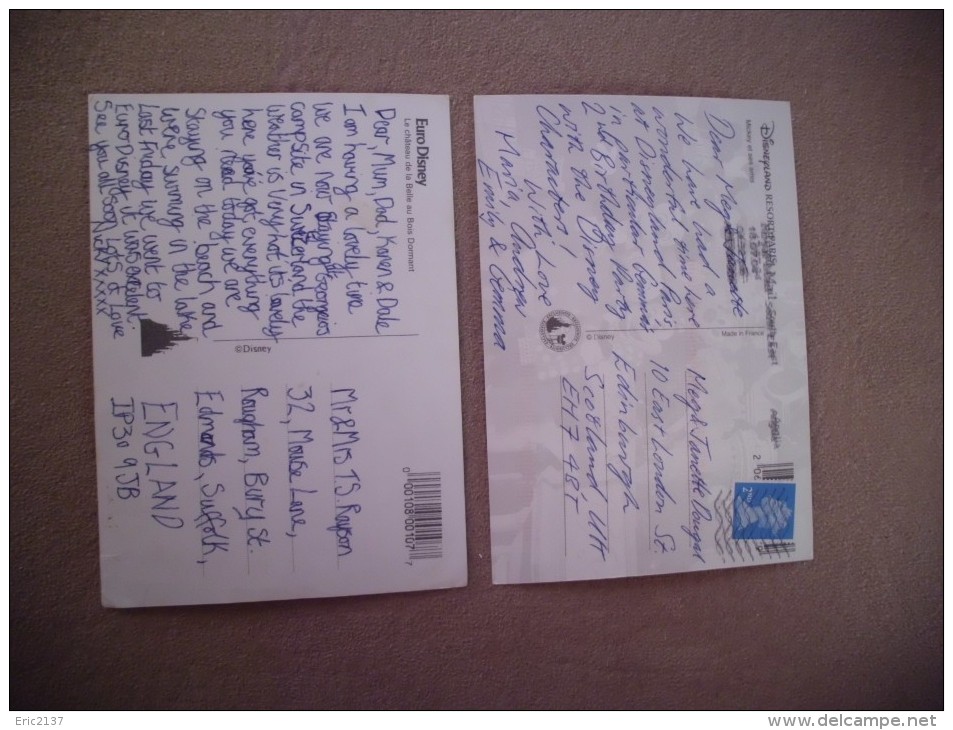 Euro Disney
Le château de la Belle au Bois Dormant
Dear, Mum, Dad, Karen & Dale
I am having a lovely time
We are now
campsite in Switzerland the
Weather is Very hot its lovely
here you've got everything
you need today we are
Staying on the beach and
were swiming in the lake
Last Friday we went to
Euro Disney it was excelent.
See you all Soon Lots of Love
XXXX
©Disney
Mr & Mrs T.S. Rayson
32, Mouse Lane,
Rougham, Bury St.
Edmonds, Suffolk,
ENGLAND
IP30 9JB
0 00108 00107 7
DISNEYLAND RESORT PARIS
Mickey et ses amis
Dear Meg &
We have had a
wonderful time here
at Disneyland Paris
in particular Gemma's
2nd Birthday Party
with the Disney
Charracters!
With Love
Maria, Andrew
Emily & Gemma
© Disney
Made in France
Meg & Janette Dougal
10 East London St.
Edinburgh
Scotland UK
EH7 4BT
2 06
2ND
Eric2137
www.delcampe.net